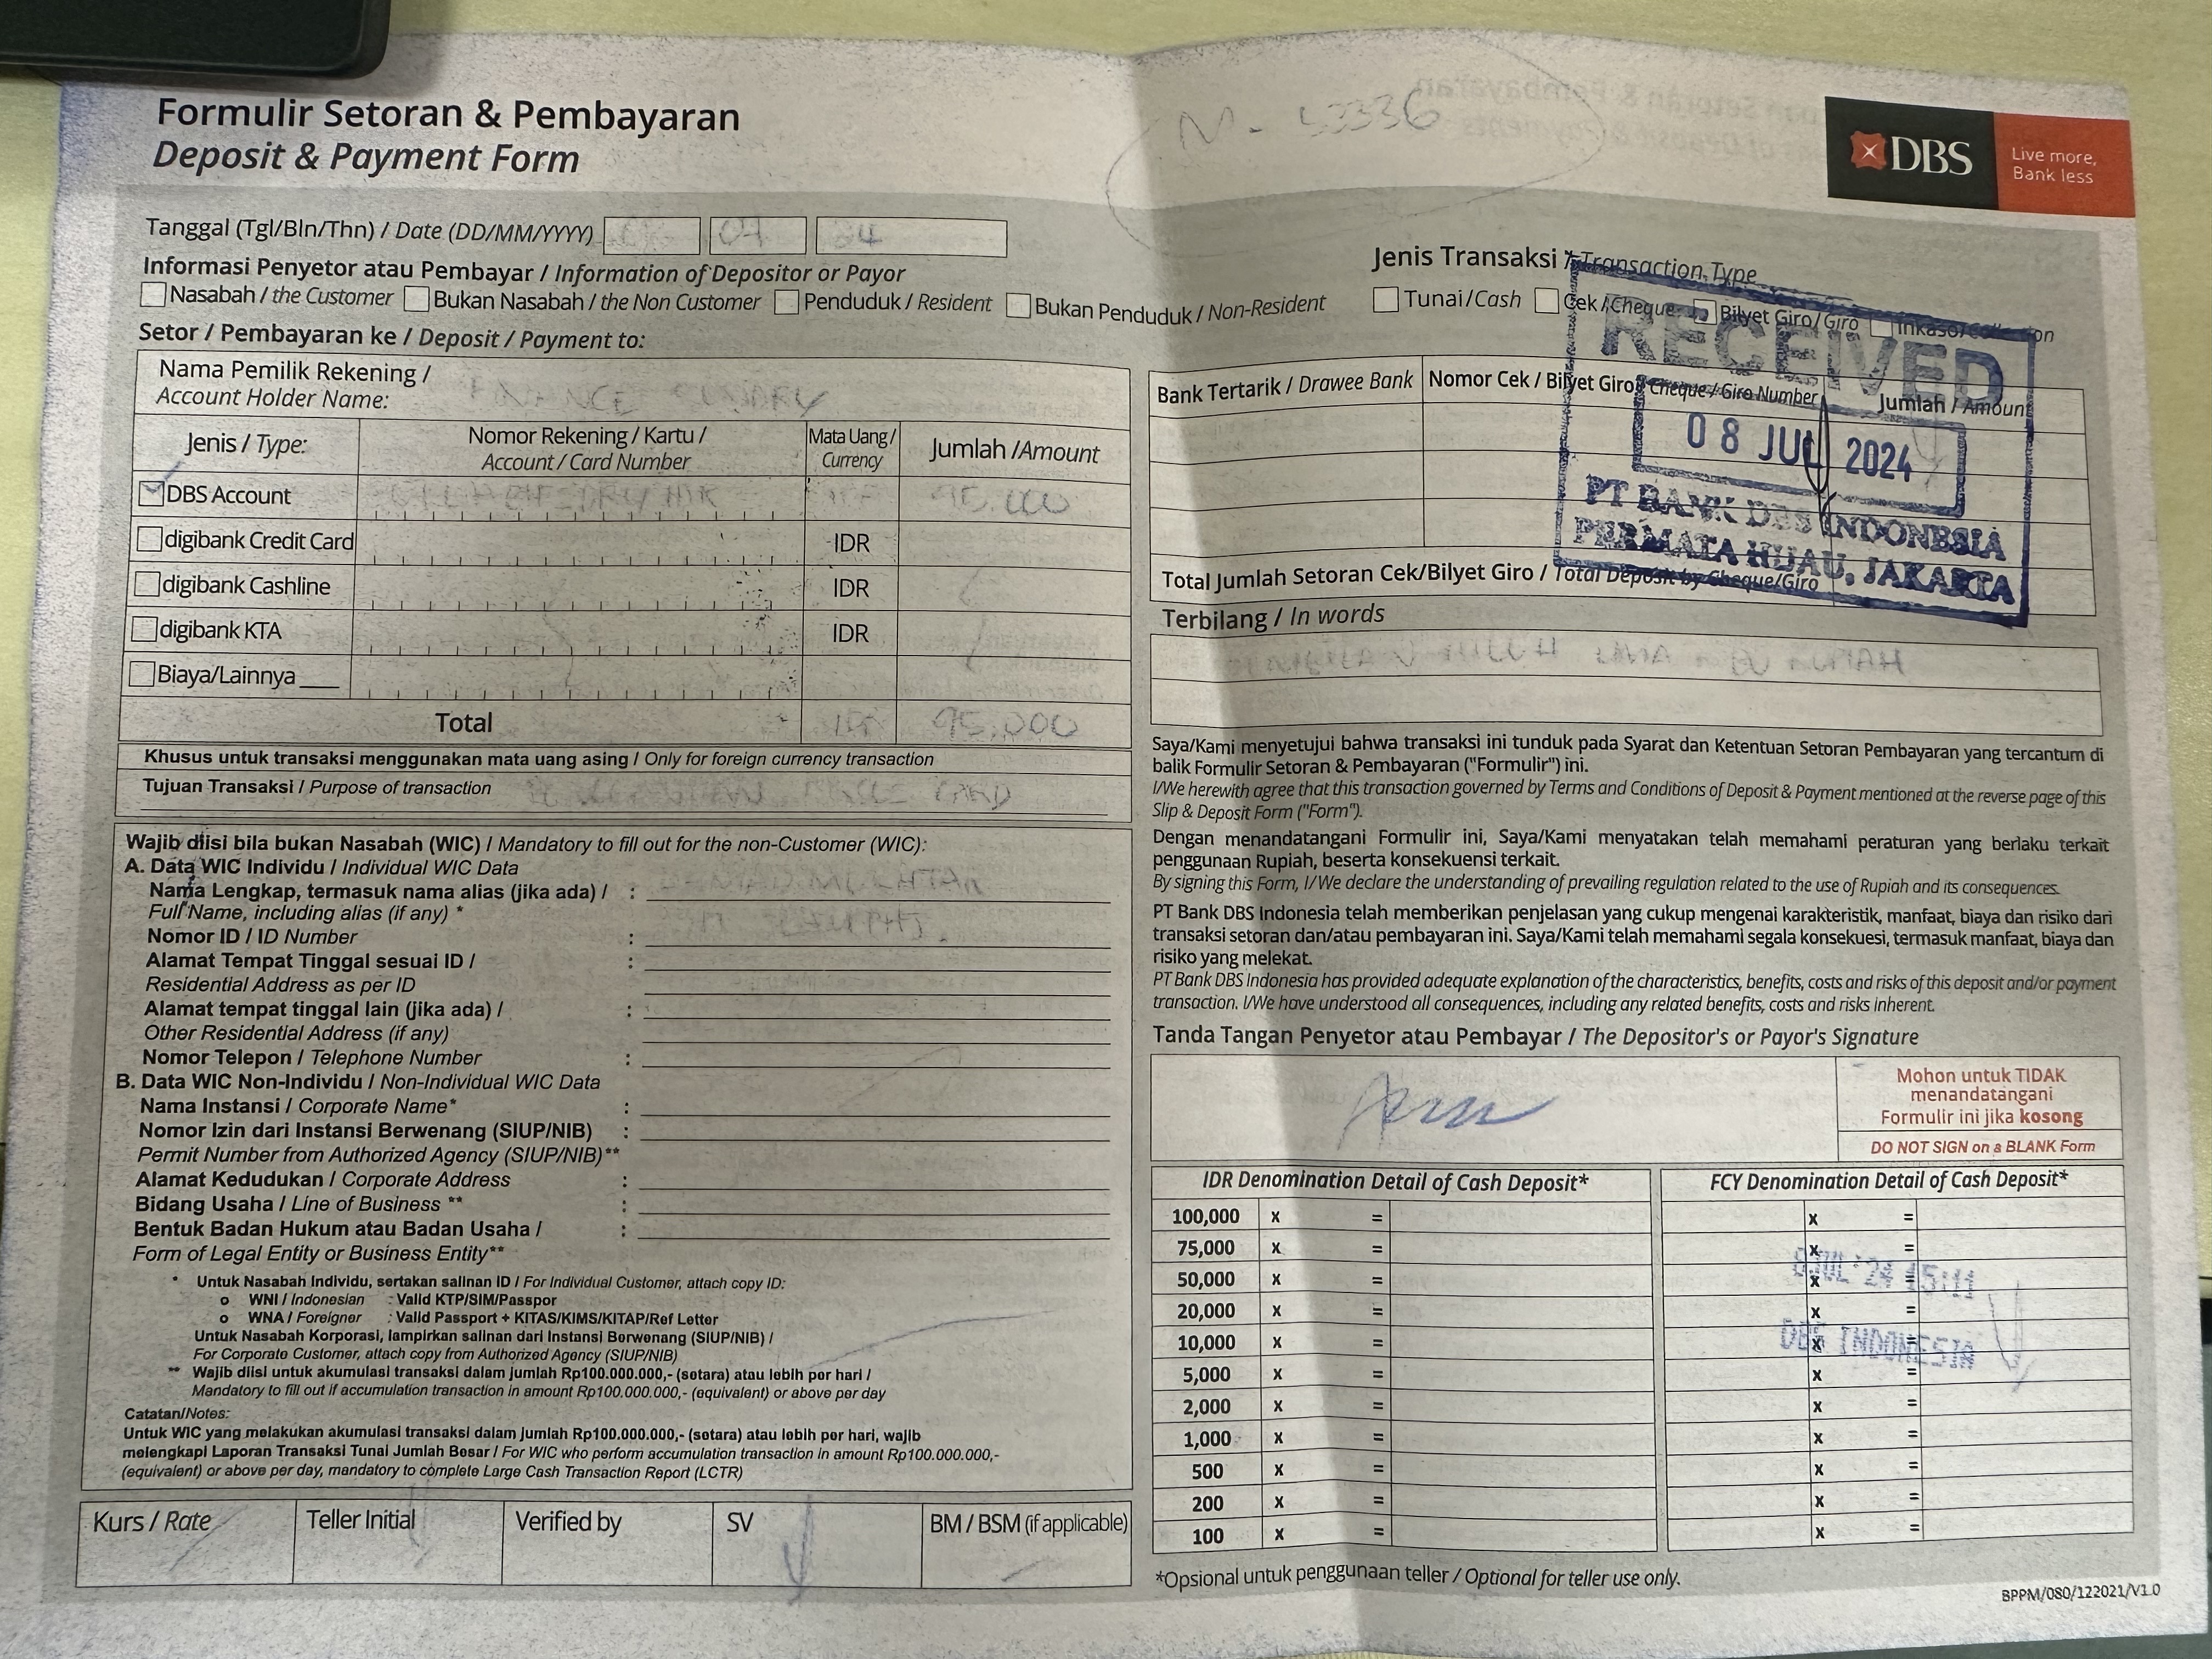 Formulir Setoran & Pembayaran
Deposit & Payment Form
DBS
Live more,
Bank less
Tanggal (Tgl/Bln/Thn) / Date (DD/MM/YYYY)
Informasi Penyetor atau Pembayar / Information of Depositor or Payor
Nasabah / the Customer Bukan Nasabah / the Non Customer Penduduk / Resident Bukan Penduduk / Non-Resident
Jenis Transaksi / Transaction Type
Tunai / Cash Cek / Cheque Bilyet Giro / Giro Inkaso/Collection
Setor / Pembayaran ke / Deposit / Payment to:
Nama Pemilik Rekening /
Account Holder Name:
Jenis / Type:
Nomor Rekening / Kartu /
Account / Card Number
Mata Uang /
Currency
Jumlah /Amount
DBS Account
digibank Credit Card IDR
digibank Cashline IDR
digibank KTA IDR
Biaya/Lainnya
Total 95,000
Khusus untuk transaksi menggunakan mata uang asing / Only for foreign currency transaction
Tujuan Transaksi / Purpose of transaction
Wajib diisi bila bukan Nasabah (WIC) / Mandatory to fill out for the non-Customer (WIC):
A. Data WIC Individu / Individual WIC Data
Nama Lengkap, termasuk nama alias (jika ada) / :
Full Name, including alias (if any) *
Nomor ID / ID Number :
Alamat Tempat Tinggal sesuai ID / :
Residential Address as per ID
Alamat tempat tinggal lain (jika ada) / :
Other Residential Address (if any)
Nomor Telepon / Telephone Number :
B. Data WIC Non-Individu / Non-Individual WIC Data
Nama Instansi / Corporate Name* :
Nomor Izin dari Instansi Berwenang (SIUP/NIB) :
Permit Number from Authorized Agency (SIUP/NIB)**
Alamat Kedudukan / Corporate Address :
Bidang Usaha / Line of Business ** :
Bentuk Badan Hukum atau Badan Usaha / :
Form of Legal Entity or Business Entity**
* Untuk Nasabah Individu, sertakan salinan ID / For Individual Customer, attach copy ID:
o WNI / Indonesian : Valid KTP/SIM/Passpor
o WNA / Foreigner : Valid Passport + KITAS/KIMS/KITAP/Ref Letter
Untuk Nasabah Korporasi, lampirkan salinan dari Instansi Berwenang (SIUP/NIB) /
For Corporate Customer, attach copy from Authorized Agency (SIUP/NIB)
** Wajib diisi untuk akumulasi transaksi dalam jumlah Rp100.000.000,- (setara) atau lebih per hari /
Mandatory to fill out if accumulation transaction in amount Rp100.000.000,- (equivalent) or above per day
Catatan/Notes:
Untuk WIC yang melakukan akumulasi transaksi dalam jumlah Rp100.000.000,- (setara) atau lebih per hari, wajib
melengkapi Laporan Transaksi Tunai Jumlah Besar / For WIC who perform accumulation transaction in amount Rp100.000.000,-
(equivalent) or above per day, mandatory to complete Large Cash Transaction Report (LCTR)
Kurs / Rate Teller Initial Verified by SV BM / BSM (if applicable)
Bank Tertarik / Drawee Bank Nomor Cek / Bilyet Giro / Cheque / Giro Number Jumlah / Amount
RECEIVED
08 JUL 2024
PT BANK DBS INDONESIA
PERMATA HIJAU, JAKARTA
Total Jumlah Setoran Cek/Bilyet Giro / Total Deposit by Cheque/Giro
Terbilang / In words
Saya/Kami menyetujui bahwa transaksi ini tunduk pada Syarat dan Ketentuan Setoran Pembayaran yang tercantum di
balik Formulir Setoran & Pembayaran ("Formulir") ini.
I/We herewith agree that this transaction governed by Terms and Conditions of Deposit & Payment mentioned at the reverse page of this
Slip & Deposit Form ("Form").
Dengan menandatangani Formulir ini, Saya/Kami menyatakan telah memahami peraturan yang berlaku terkait
penggunaan Rupiah, beserta konsekuensi terkait.
By signing this Form, I/We declare the understanding of prevailing regulation related to the use of Rupiah and its consequences.
PT Bank DBS Indonesia telah memberikan penjelasan yang cukup mengenai karakteristik, manfaat, biaya dan risiko dari
transaksi setoran dan/atau pembayaran ini. Saya/Kami telah memahami segala konsekuesi, termasuk manfaat, biaya dan
risiko yang melekat.
PT Bank DBS Indonesia has provided adequate explanation of the characteristics, benefits, costs and risks of this deposit and/or payment
transaction. I/We have understood all consequences, including any related benefits, costs and risks inherent.
Tanda Tangan Penyetor atau Pembayar / The Depositor's or Payor's Signature
Mohon untuk TIDAK
menandatangani
Formulir ini jika kosong
DO NOT SIGN on a BLANK Form
IDR Denomination Detail of Cash Deposit* FCY Denomination Detail of Cash Deposit*
100,000 x = x =
75,000 x = x =
50,000 x = x =
20,000 x = x =
10,000 x = x =
5,000 x = x =
2,000 x = x =
1,000 x = x =
500 x = x =
200 x = x =
100 x = x =
*Opsional untuk penggunaan teller / Optional for teller use only.
BPPM/080/122021/V1.0